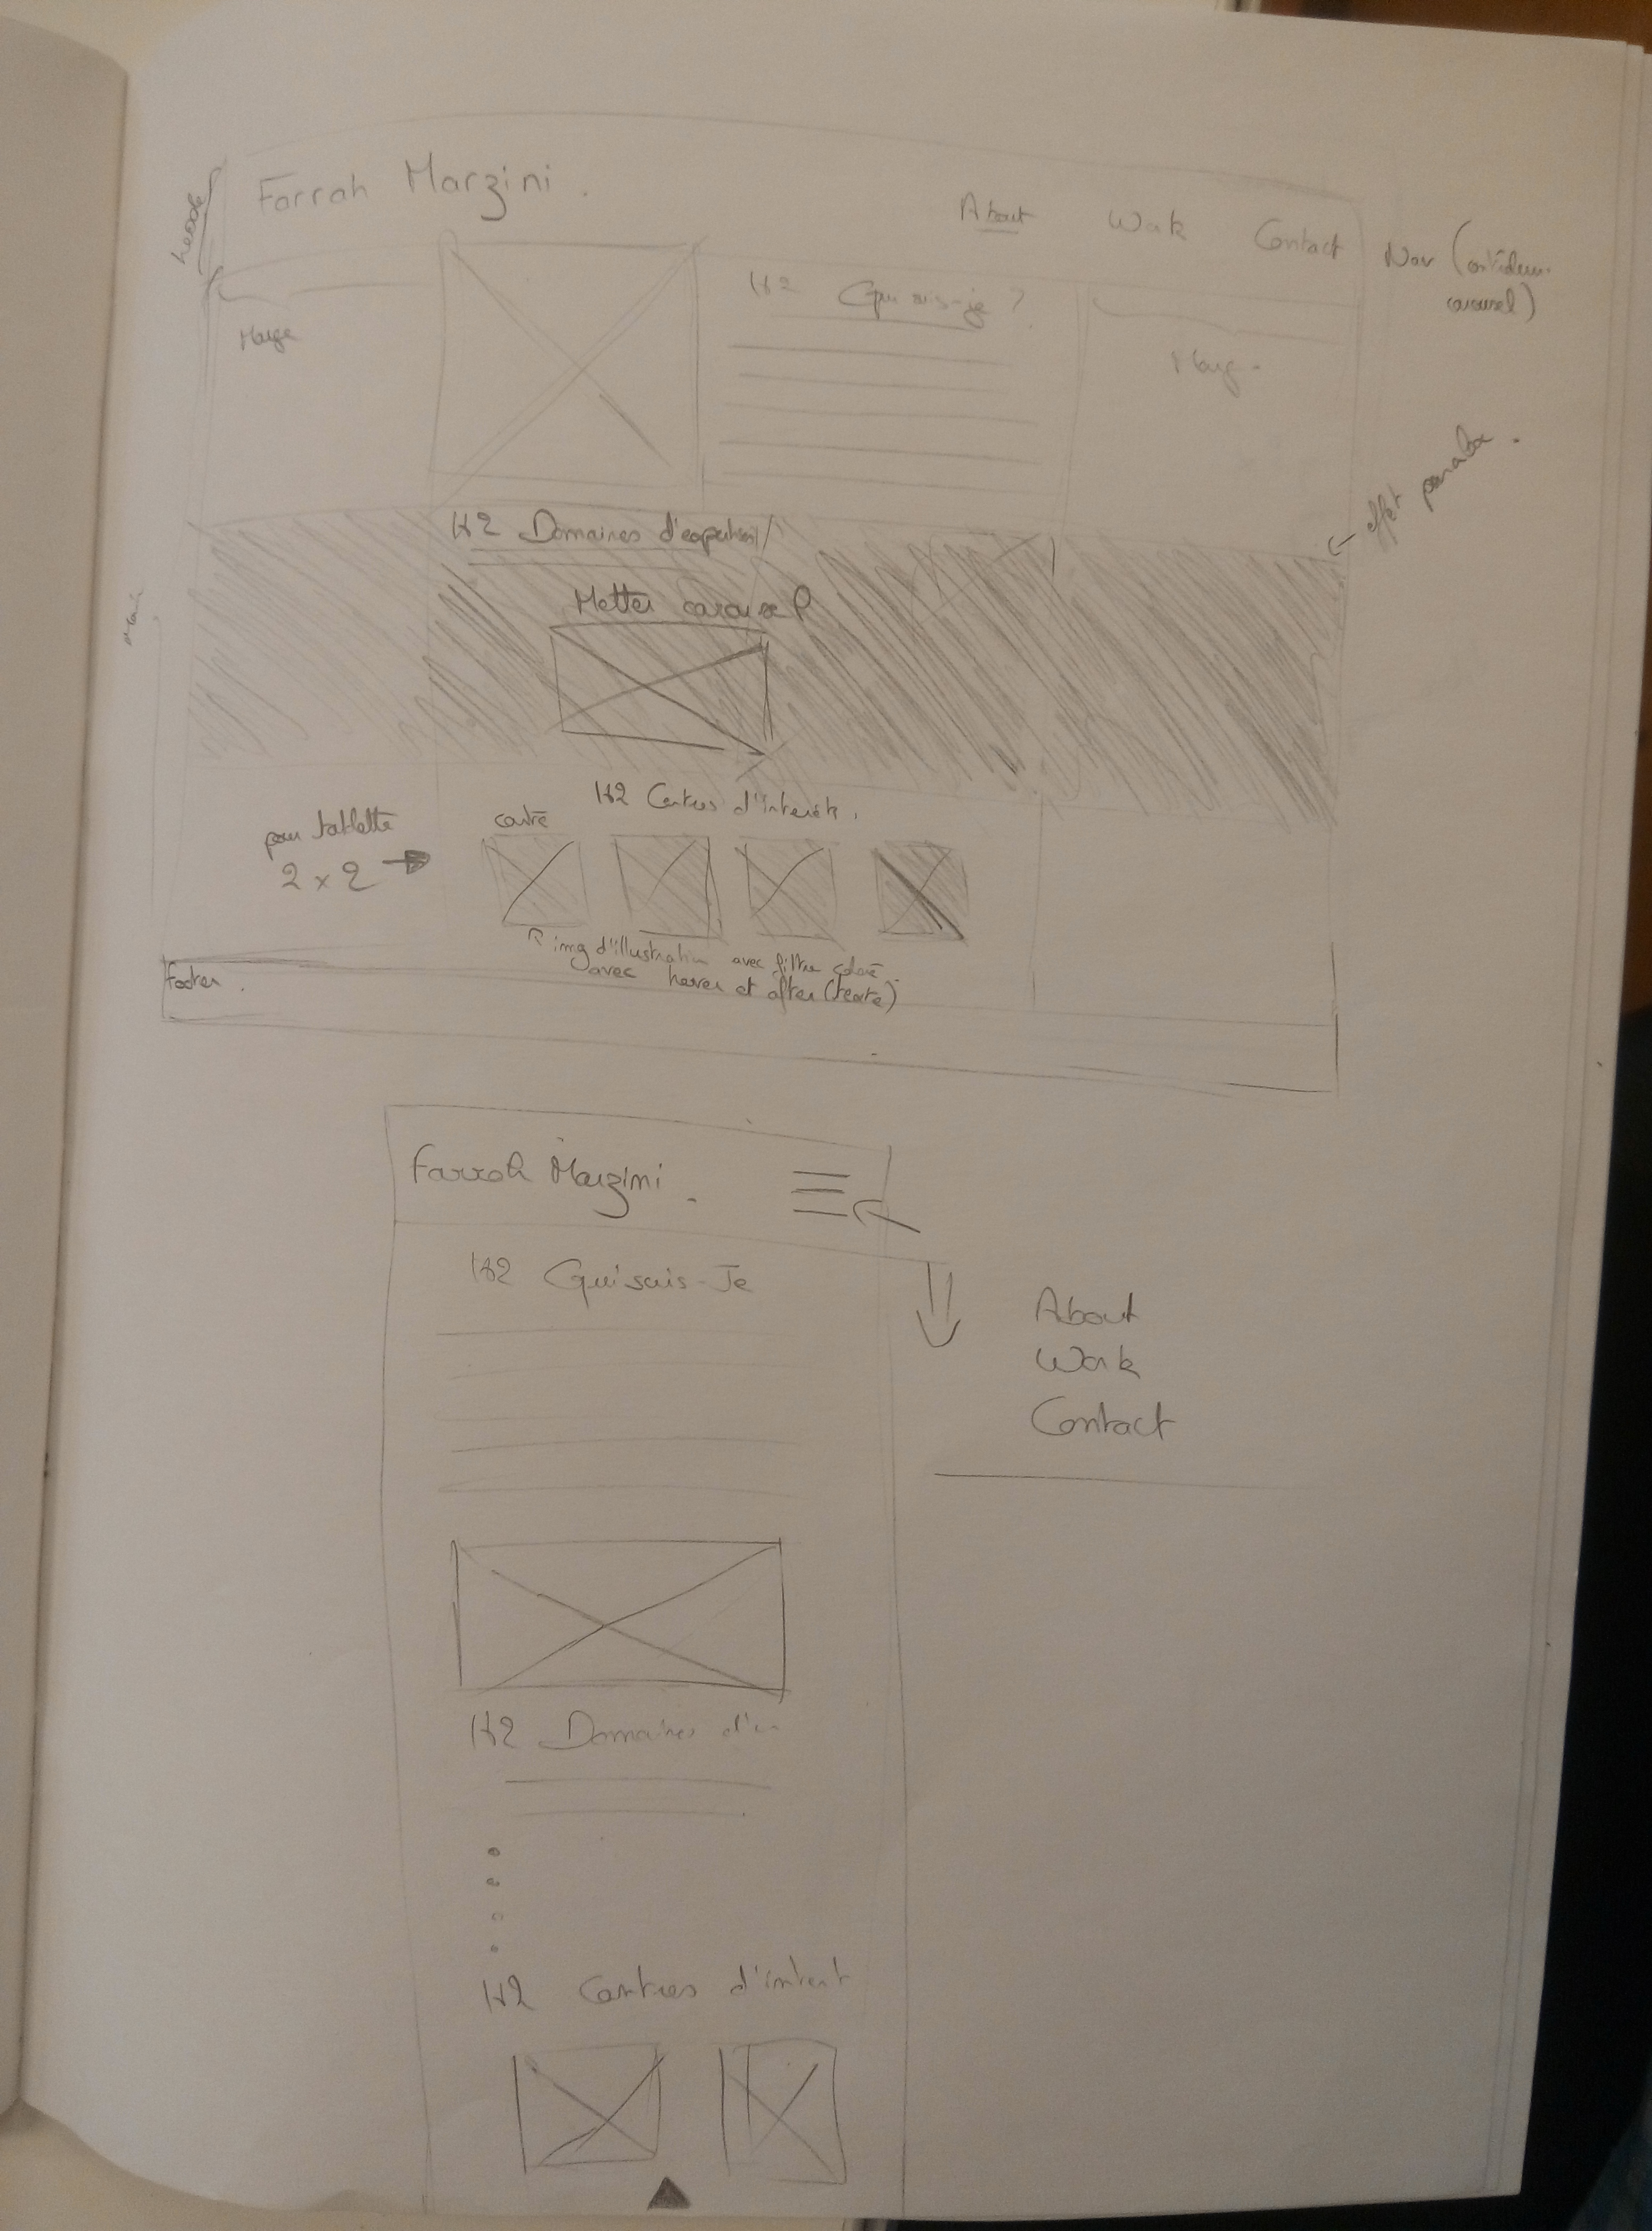 Farrah Marzini.
About Work Contact
Nav (
carousel)
header
Marge
H2 Qui suis-je ?
Marg
← effet paralax.
H2 Domaines d'expertise
Metter carousel
Main
H2 Centres d'interêt.
pour tablette
2 x 2 →
carré
↑ img d'illustration avec filtre coloré
avec hover et after (texte)
footer.
Farrah Marzini.
H2 Qui suis-Je
About
Work
Contact
H2 Domaines d'
H2 Centres d'interet